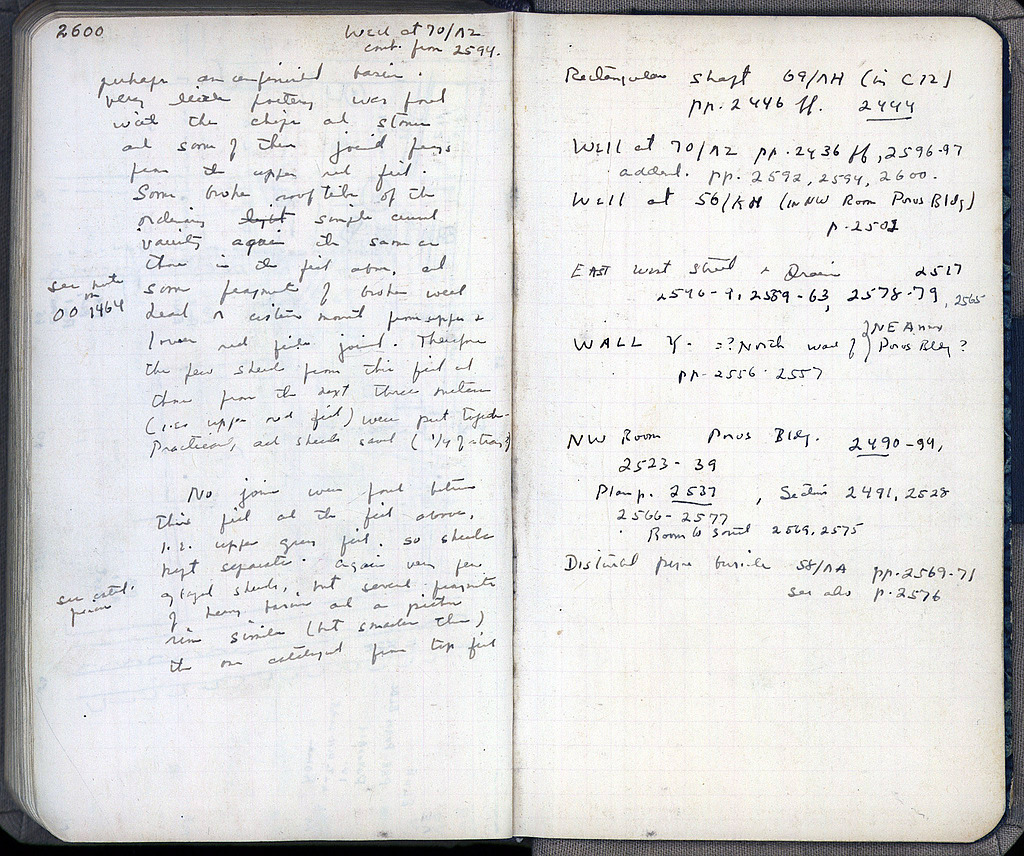 2600
Well at 70/ΛΖ
cont. from 2594.
perhaps an unfinished basin.
very little pottery was found
with the chips and stones
and some of them joined frags
from the upper red fill.
Some broken rooftiles of the
ordinary light simple curved
variety again the same as
those in the fill above, and
some fragments of broken well
head or cistern mouth from upper &
lower red fills joined. Therefore
the few sherds from this fill and
those from the next three meters
(i.e. upper red fill) were put together.
Practically all sherds saved
see note
on
OO 1464
No joins were found between
this fill and the fill above,
i.e. upper grey fill. so sherds
kept separate. Again very few
glazed sherds, but several fragments
of heavy basins and a
rim similar (but smaller than)
the one catalogued from top fill
see catal.
Rectangular Shaft 69/ΛΗ (in C 12)
pp. 2446 ff. 2444
Well at 70/ΛΖ pp. 2436 ff, 2596-97
added. pp. 2592, 2594, 2600.
Well at 56/ΚΗ (in NW Room Poros Bldg)
p. 2501
East West Street & Drain 2517
2546-9, 2559-63, 2578-79, 2565
WALL Y. =? North wall of {NE Annex
Poros Bldg?
pp. 2556-2557
NW Room Poros Bldg. 2490-94,
2523-39
Plan p. 2537, Section 2491, 2528
2566-2577
Room to South 2569, 2575
Disturbed pyre burial 58/ΛΑ pp. 2569-71
see also p. 2576